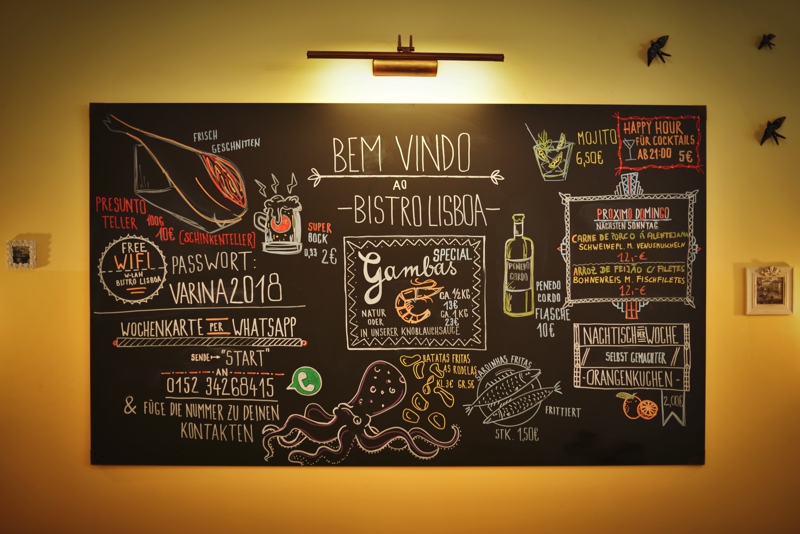 BEM VINDO
AO
-BISTRO LISBOA-
FRISCH
GESCHNITTEN
PRESUNTO
TELLER 100G
10€ (SCHINKENTELLER)
SUPER
BOCK
0,33 2€
FREE
WIFI
W-LAN
BISTRO LISBOA
PASSWORT:
VARINA2018
WOCHENKARTE PER WHATSAPP
SENDE "START"
- AN -
0152 34268415
& FÜGE DIE NUMMER ZU DEINEN
KONTAKTEN
SPECIAL
Gambas
CA. ½KG
13€
CA. 1 KG
23€
NATUR
ODER
IN UNSERER KNOBLAUCHSAUCE
BATATAS FRITAS
AS RODELAS
KL.3€ GR.5€
SARDINHAS FRITAS
FRITTIERT
STK. 1,50€
PENEDO
GORDO
PENEDO
GORDO
FLASCHE
10€
MOJITO
6,50€
HAPPY HOUR
FÜR COCKTAILS
AB 21:00 5€
PROXIMO DOMINGO
NÄCHSTEN SONNTAG
CARNE DE PORCO Á ALENTEJANA
SCHWEINEFL. M. VENUSMUSCHELN
12,-€
ARROZ DE FEIJÃO C/ FILETES
BOHNENREIS M. FISCHFILETES
12,-€
NACHTISCH DER WOCHE
SELBST GEMACHTER
-ORANGENKUCHEN-
2,00€